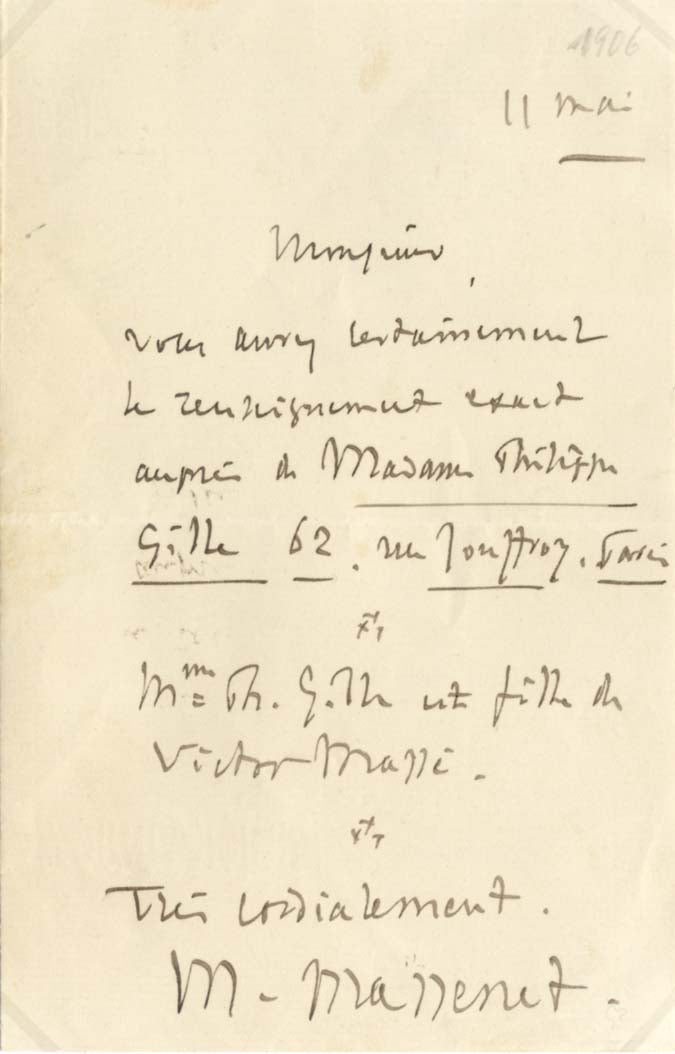 1906
11 mai
Monsieur,
vous aurez certainement
le renseignement exact
auprès de Madame Philippe
Gille 62. rue Jouffroy. Paris
Mme Ph. Gille est fille de
Victor Massé.
Très cordialement.
M. Massenet.